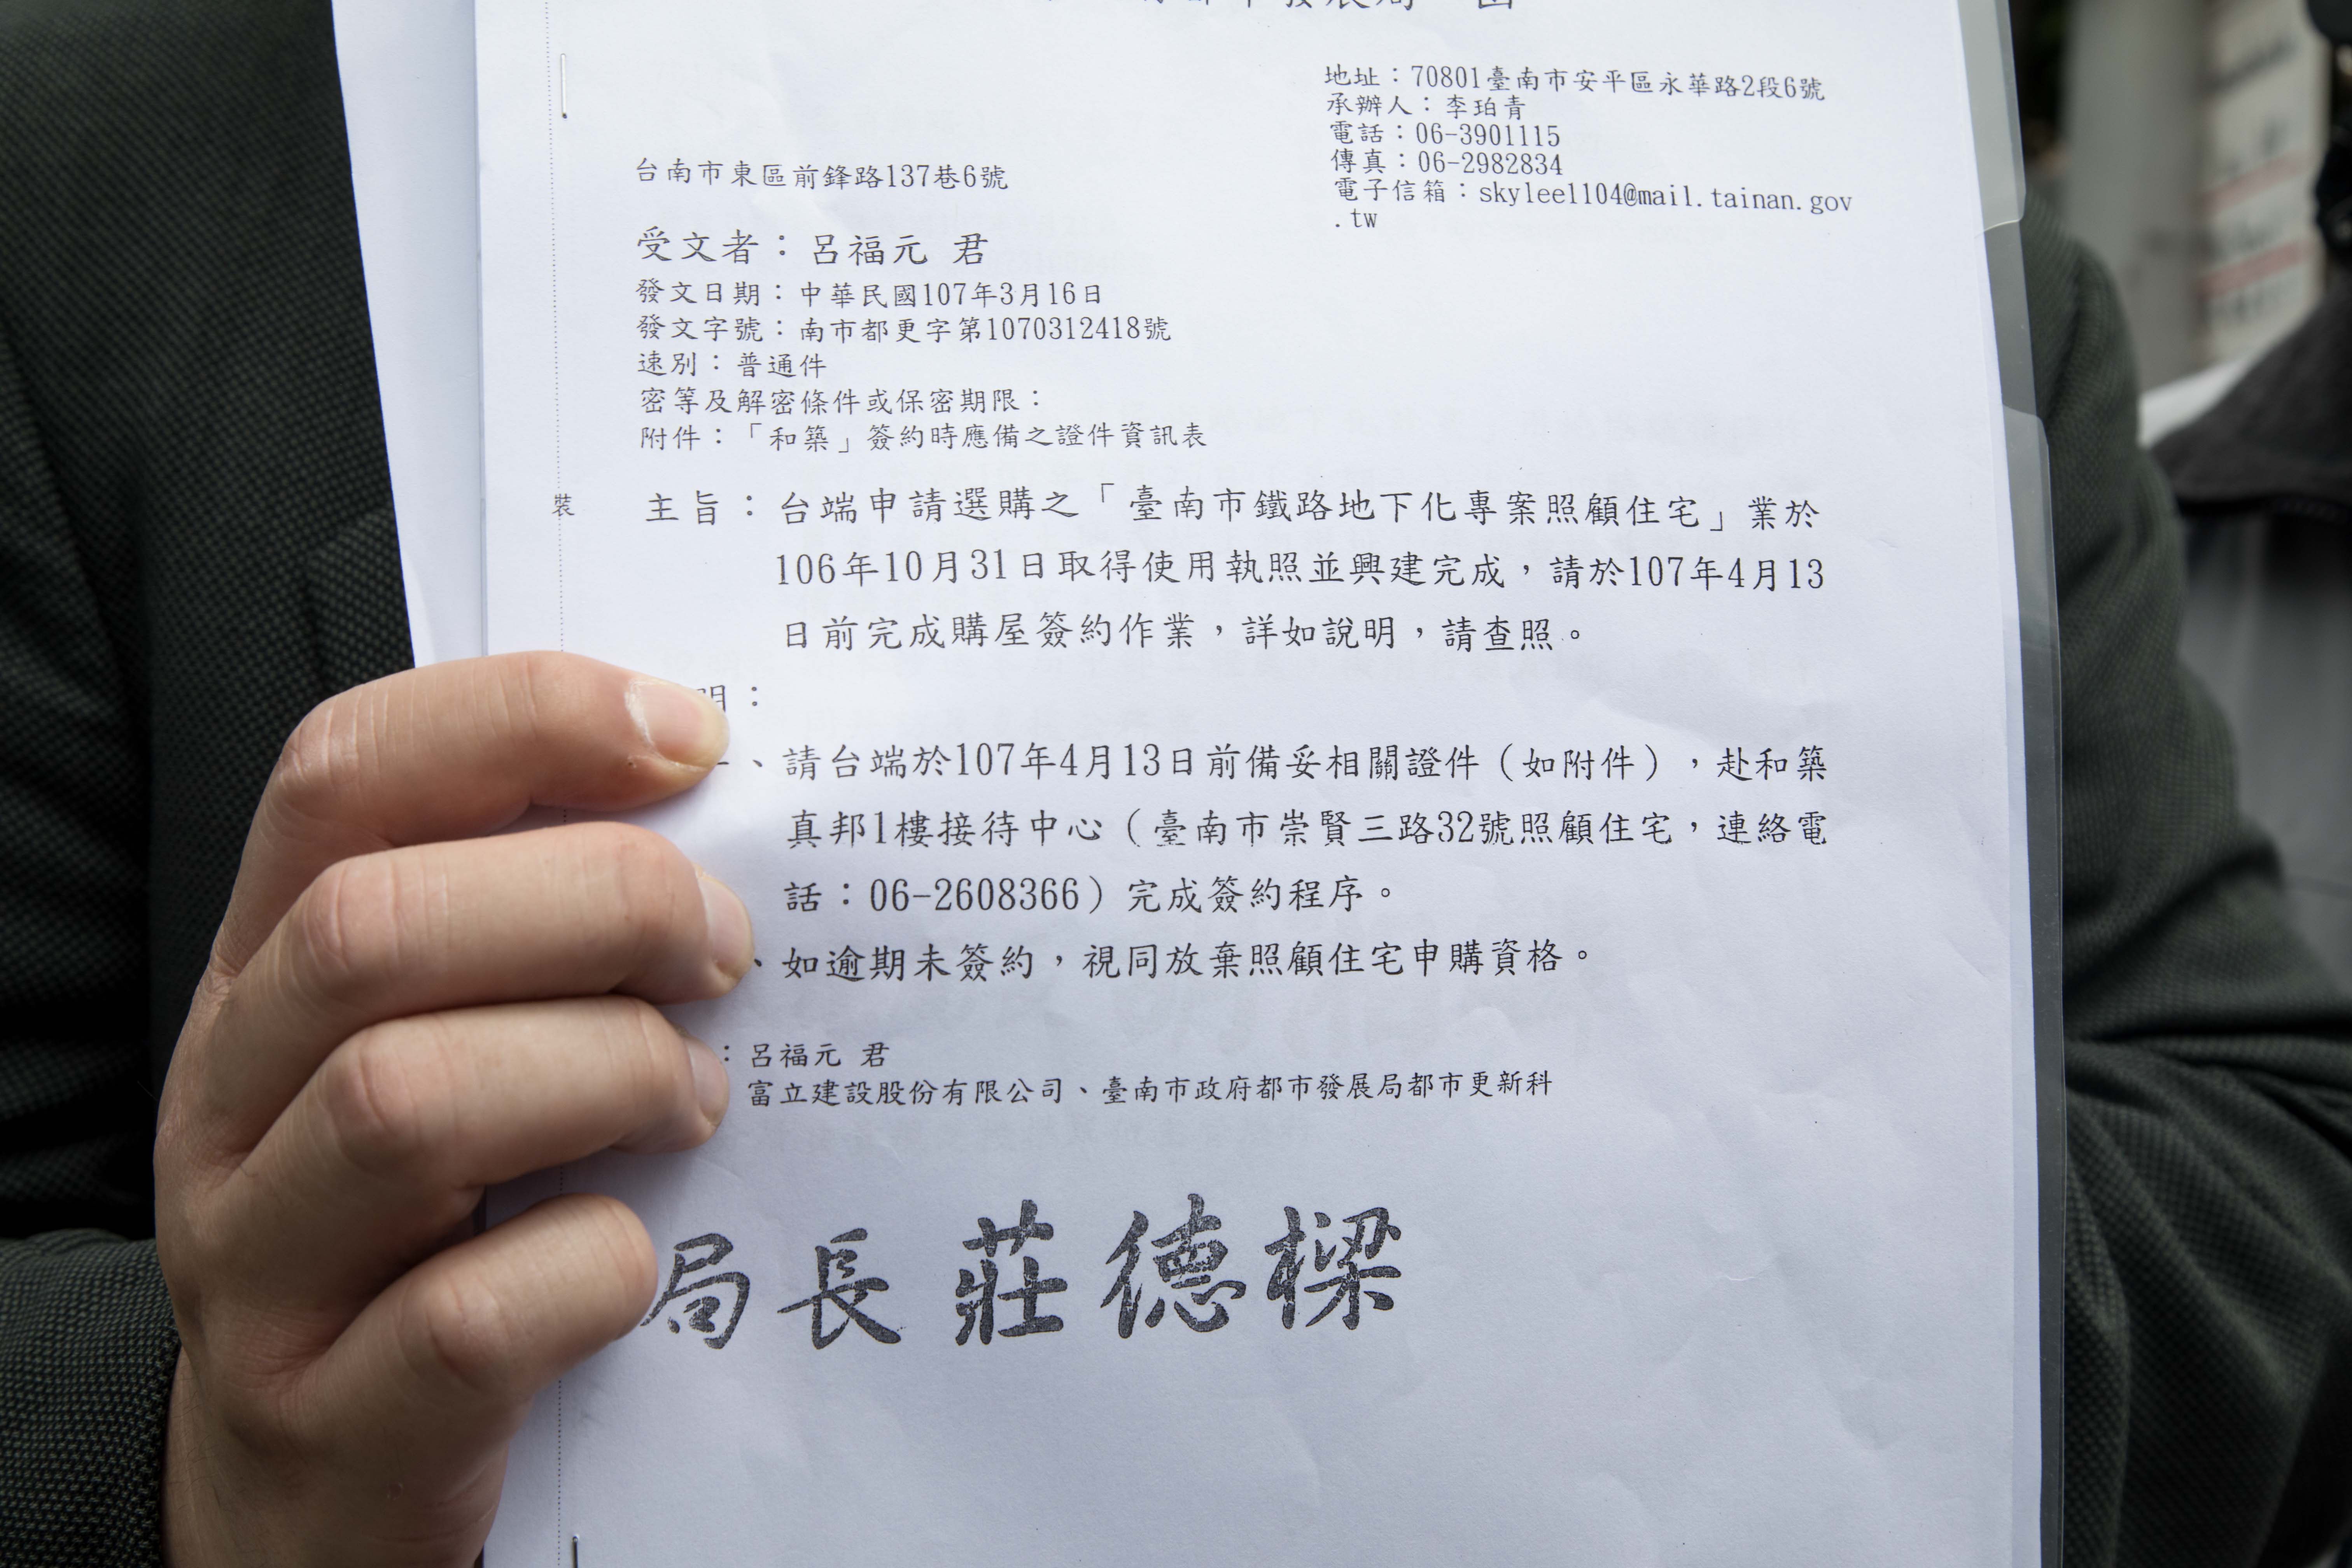 市發展局 函
地址：70801臺南市安平區永華路2段6號
承辦人：李珀青
電話：06-3901115
傳真：06-2982834
電子信箱：skylee1104@mail.tainan.gov
.tw
台南市東區前鋒路137巷6號
受文者：呂福元 君
發文日期：中華民國107年3月16日
發文字號：南市都更字第1070312418號
速別：普通件
密等及解密條件或保密期限：
附件：「和築」簽約時應備之證件資訊表
裝
主旨：台端申請選購之「臺南市鐵路地下化專案照顧住宅」業於
106年10月31日取得使用執照並興建完成，請於107年4月13
日前完成購屋簽約作業，詳如說明，請查照。
明：
一、請台端於107年4月13日前備妥相關證件（如附件），赴和築
真邦1樓接待中心（臺南市崇賢三路32號照顧住宅，連絡電
話：06-2608366）完成簽約程序。
、如逾期未簽約，視同放棄照顧住宅申購資格。
：呂福元 君
富立建設股份有限公司、臺南市政府都市發展局都市更新科
局長莊德樑